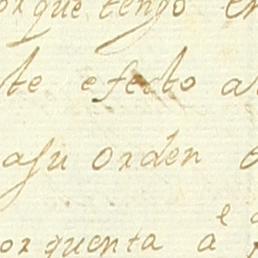 porque tengo en
te efecto a
asu orden
por quenta a